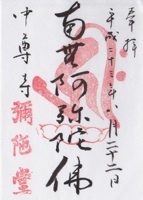 奉拝
平成二十三年八月二十二日
南無阿弥陀佛
中尊寺
彌陀堂